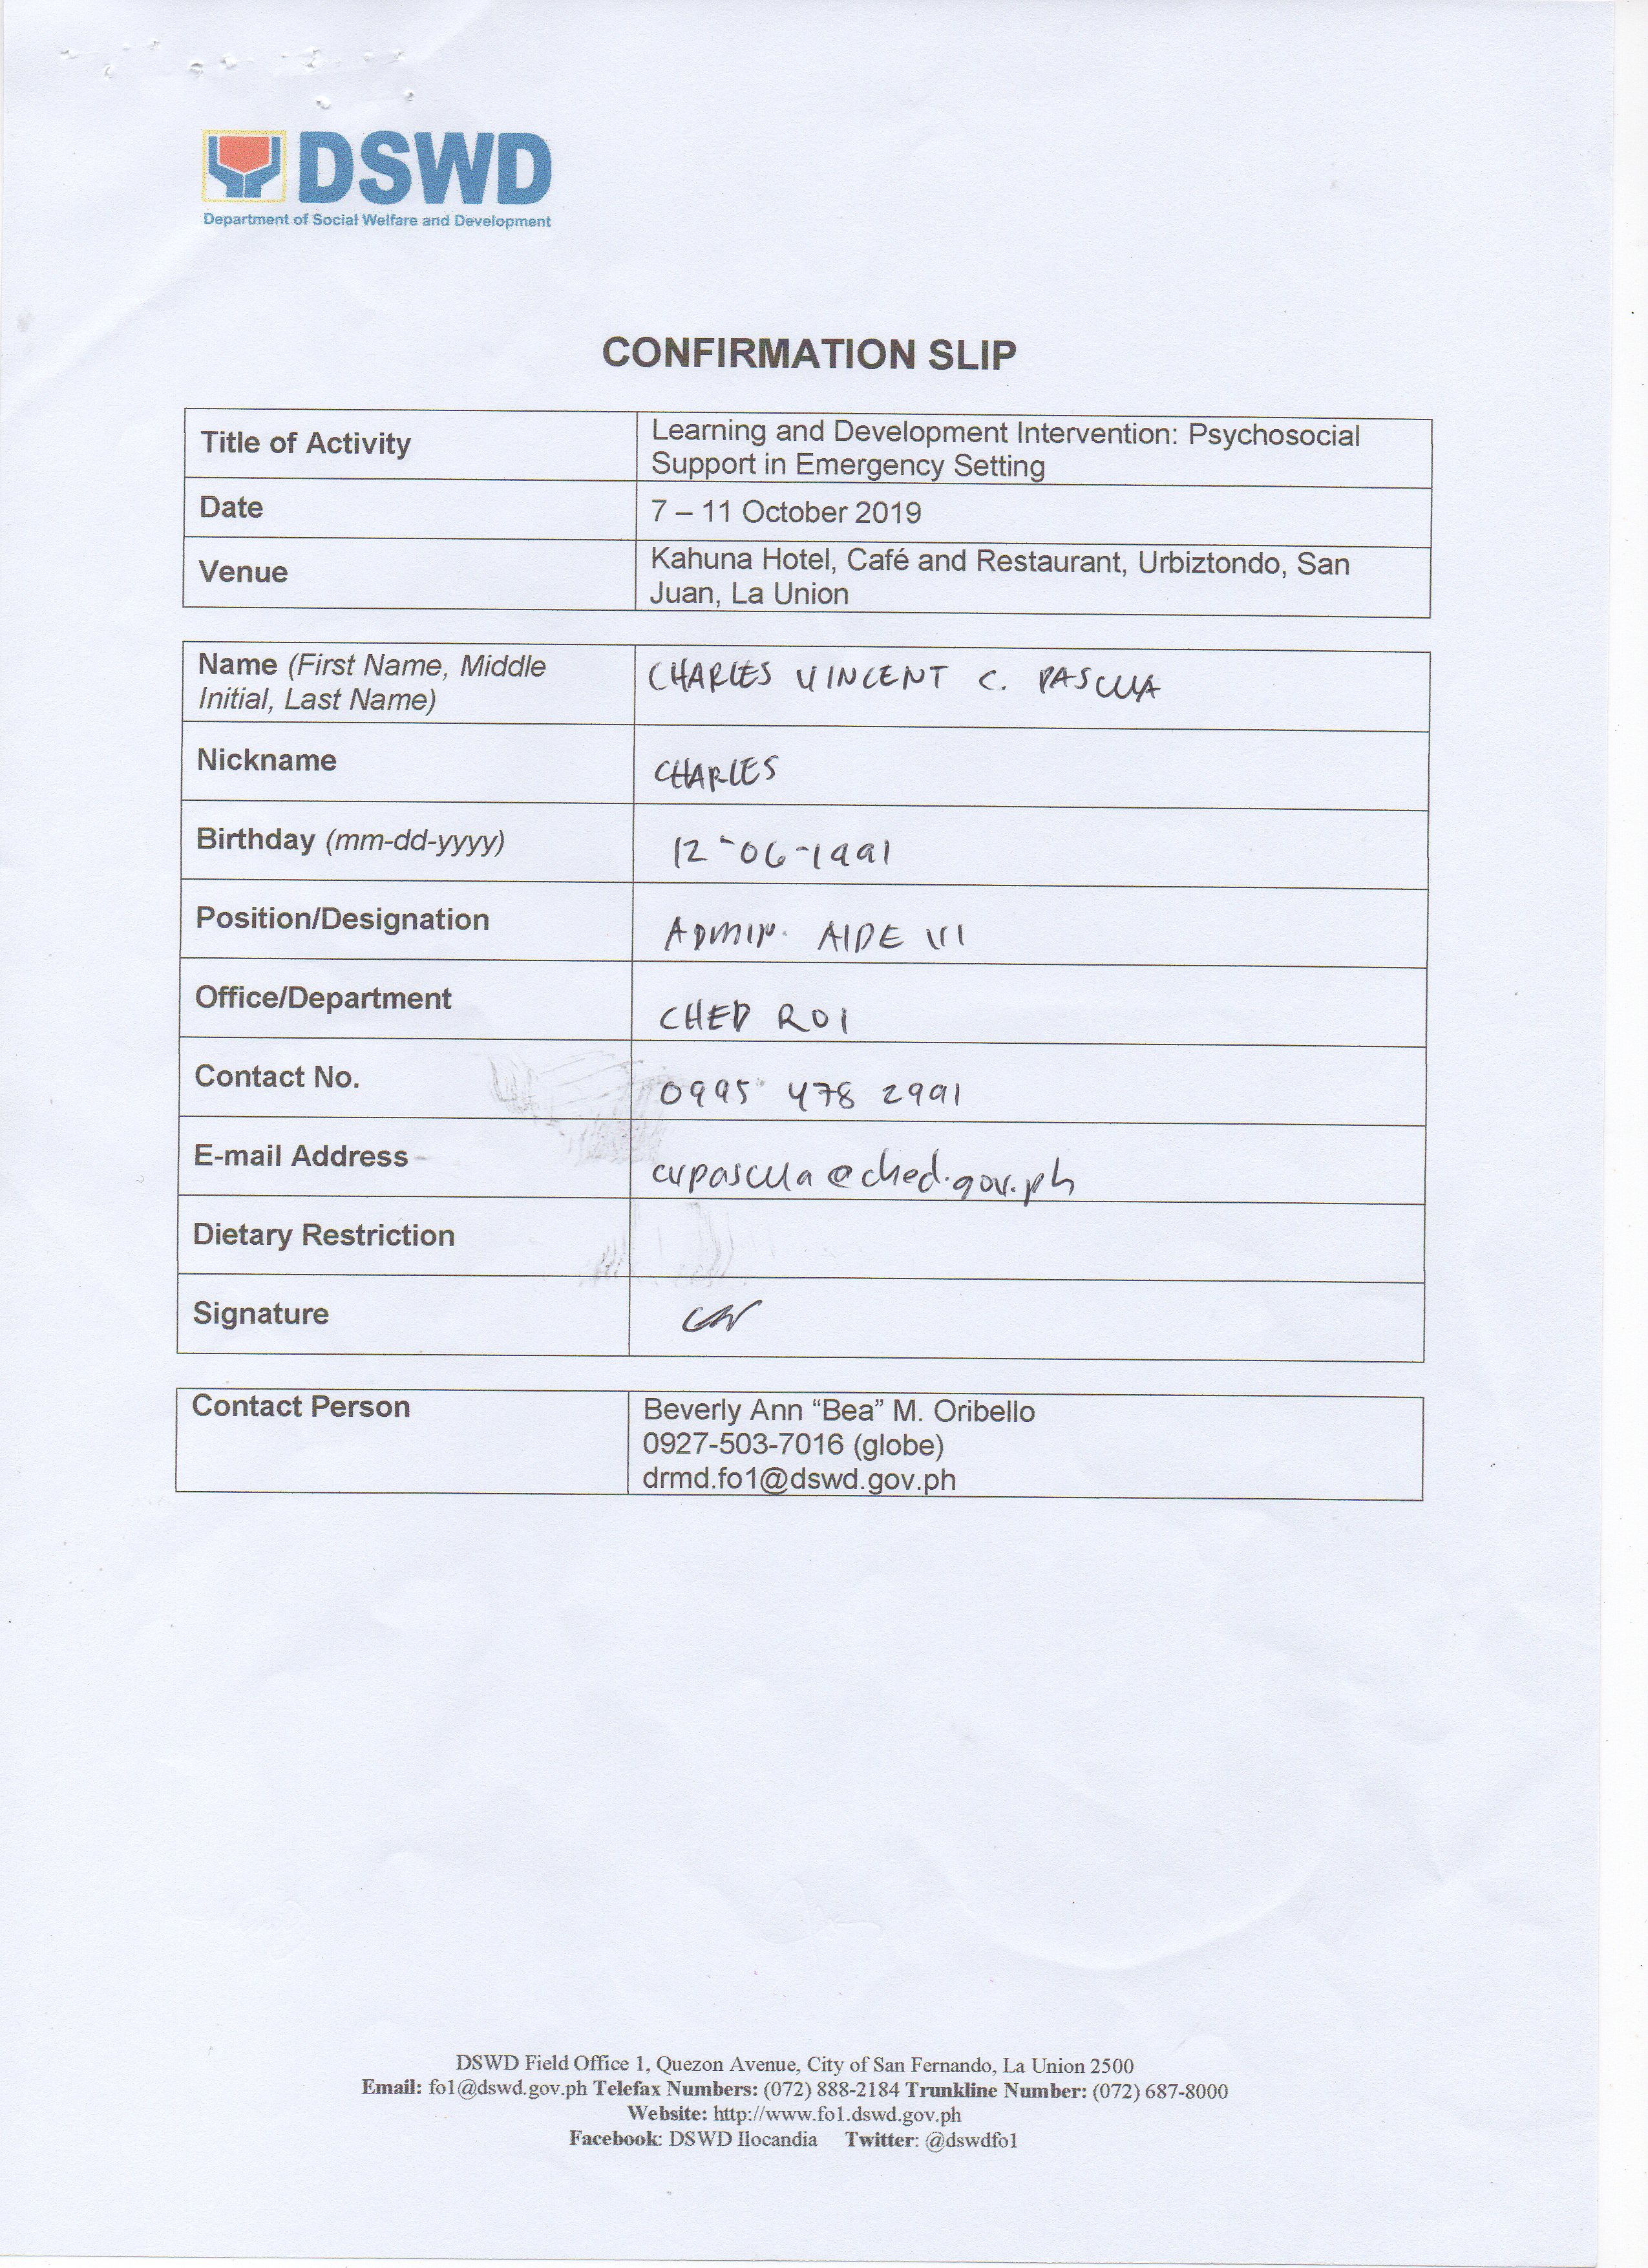 DSWD
Department of Social Welfare and Development
CONFIRMATION SLIP
Title of Activity
Learning and Development Intervention: Psychosocial
Support in Emergency Setting
Date
7 – 11 October 2019
Venue
Kahuna Hotel, Café and Restaurant, Urbiztondo, San
Juan, La Union
Name (First Name, Middle
Initial, Last Name)
CHARLES VINCENT C. PASCUA
Nickname
CHARLES
Birthday (mm-dd-yyyy)
12-06-1991
Position/Designation
ADMIN. AIDE III
Office/Department
CHED RO1
Contact No.
0995 478 2991
E-mail Address
cvpascua@ched.gov.ph
Dietary Restriction
Signature
Contact Person
Beverly Ann “Bea” M. Oribello
0927-503-7016 (globe)
drmd.fo1@dswd.gov.ph
DSWD Field Office 1, Quezon Avenue, City of San Fernando, La Union 2500
Email: fo1@dswd.gov.ph Telefax Numbers: (072) 888-2184 Trunkline Number: (072) 687-8000
Website: http://www.fo1.dswd.gov.ph
Facebook: DSWD Ilocandia Twitter: @dswdfo1